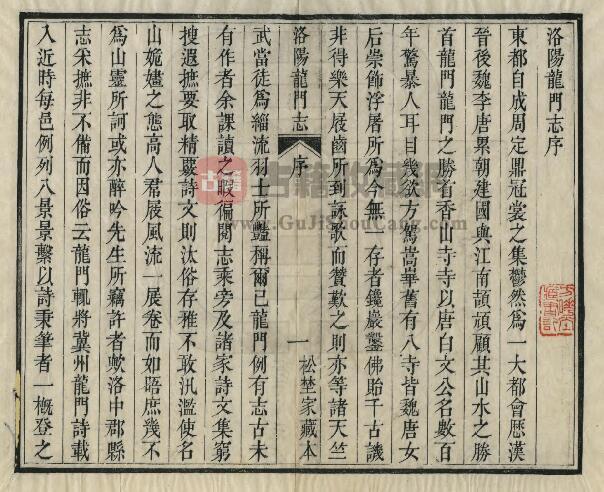 洛陽龍門志序
東都自成周定鼎冠裳之集鬱然爲一大都會歷漢
晉後魏李唐累朝建國與江南頡頏顧其山水之勝
首龍門龍門之勝首香山寺寺以唐白文公名數百
年驚暴人耳目幾欲方駕嵩華舊有八寺皆魏唐女
后崇飾浮屠所爲今無一存者鑱巖鑿佛貽千古譏
非得樂天屐齒所到詠歌而贊歎之則亦等諸天竺
洛陽龍門志
序
一
松埜家藏本
武當徒爲緇流羽士所豔稱爾已龍門例有志古未
有作者余課讀之暇徧閱志乘旁及諸家詩文集窮
搜遐摭要取精覈詩文則汰俗存雅不敢汎濫使名
山姽嫿之態高人君屐風流一展卷而如晤庶幾不
爲山靈所訶或亦醉吟先生所竊許者歟洛中郡縣
志采摭非不備而因俗云龍門輒將冀州龍門詩載
入近時每邑例列八景景繫以詩秉筆者一概登之
古籍收藏网
www.GuJiShouCang.com